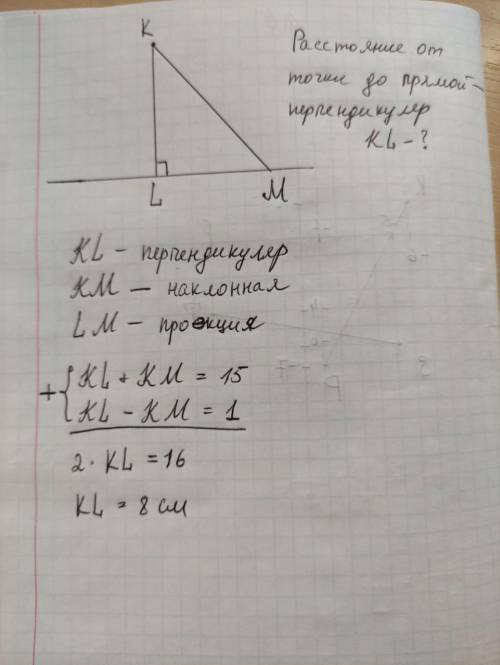 K
Расстояние от
точки до прямой –
перпендикуляр
KL – ?
L
M
KL – перпендикуляр
KM – наклонная
LM – проекция
+ { KL + KM = 15
KL – KM = 1
2 · KL = 16
KL = 8 см